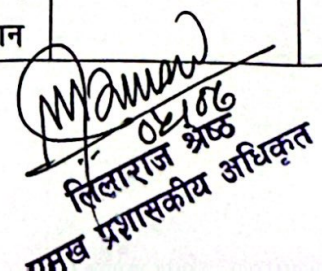 न
०५/०६
लिलाराज श्रेष्ठ
प्रमुख प्रशासकीय अधिकृत